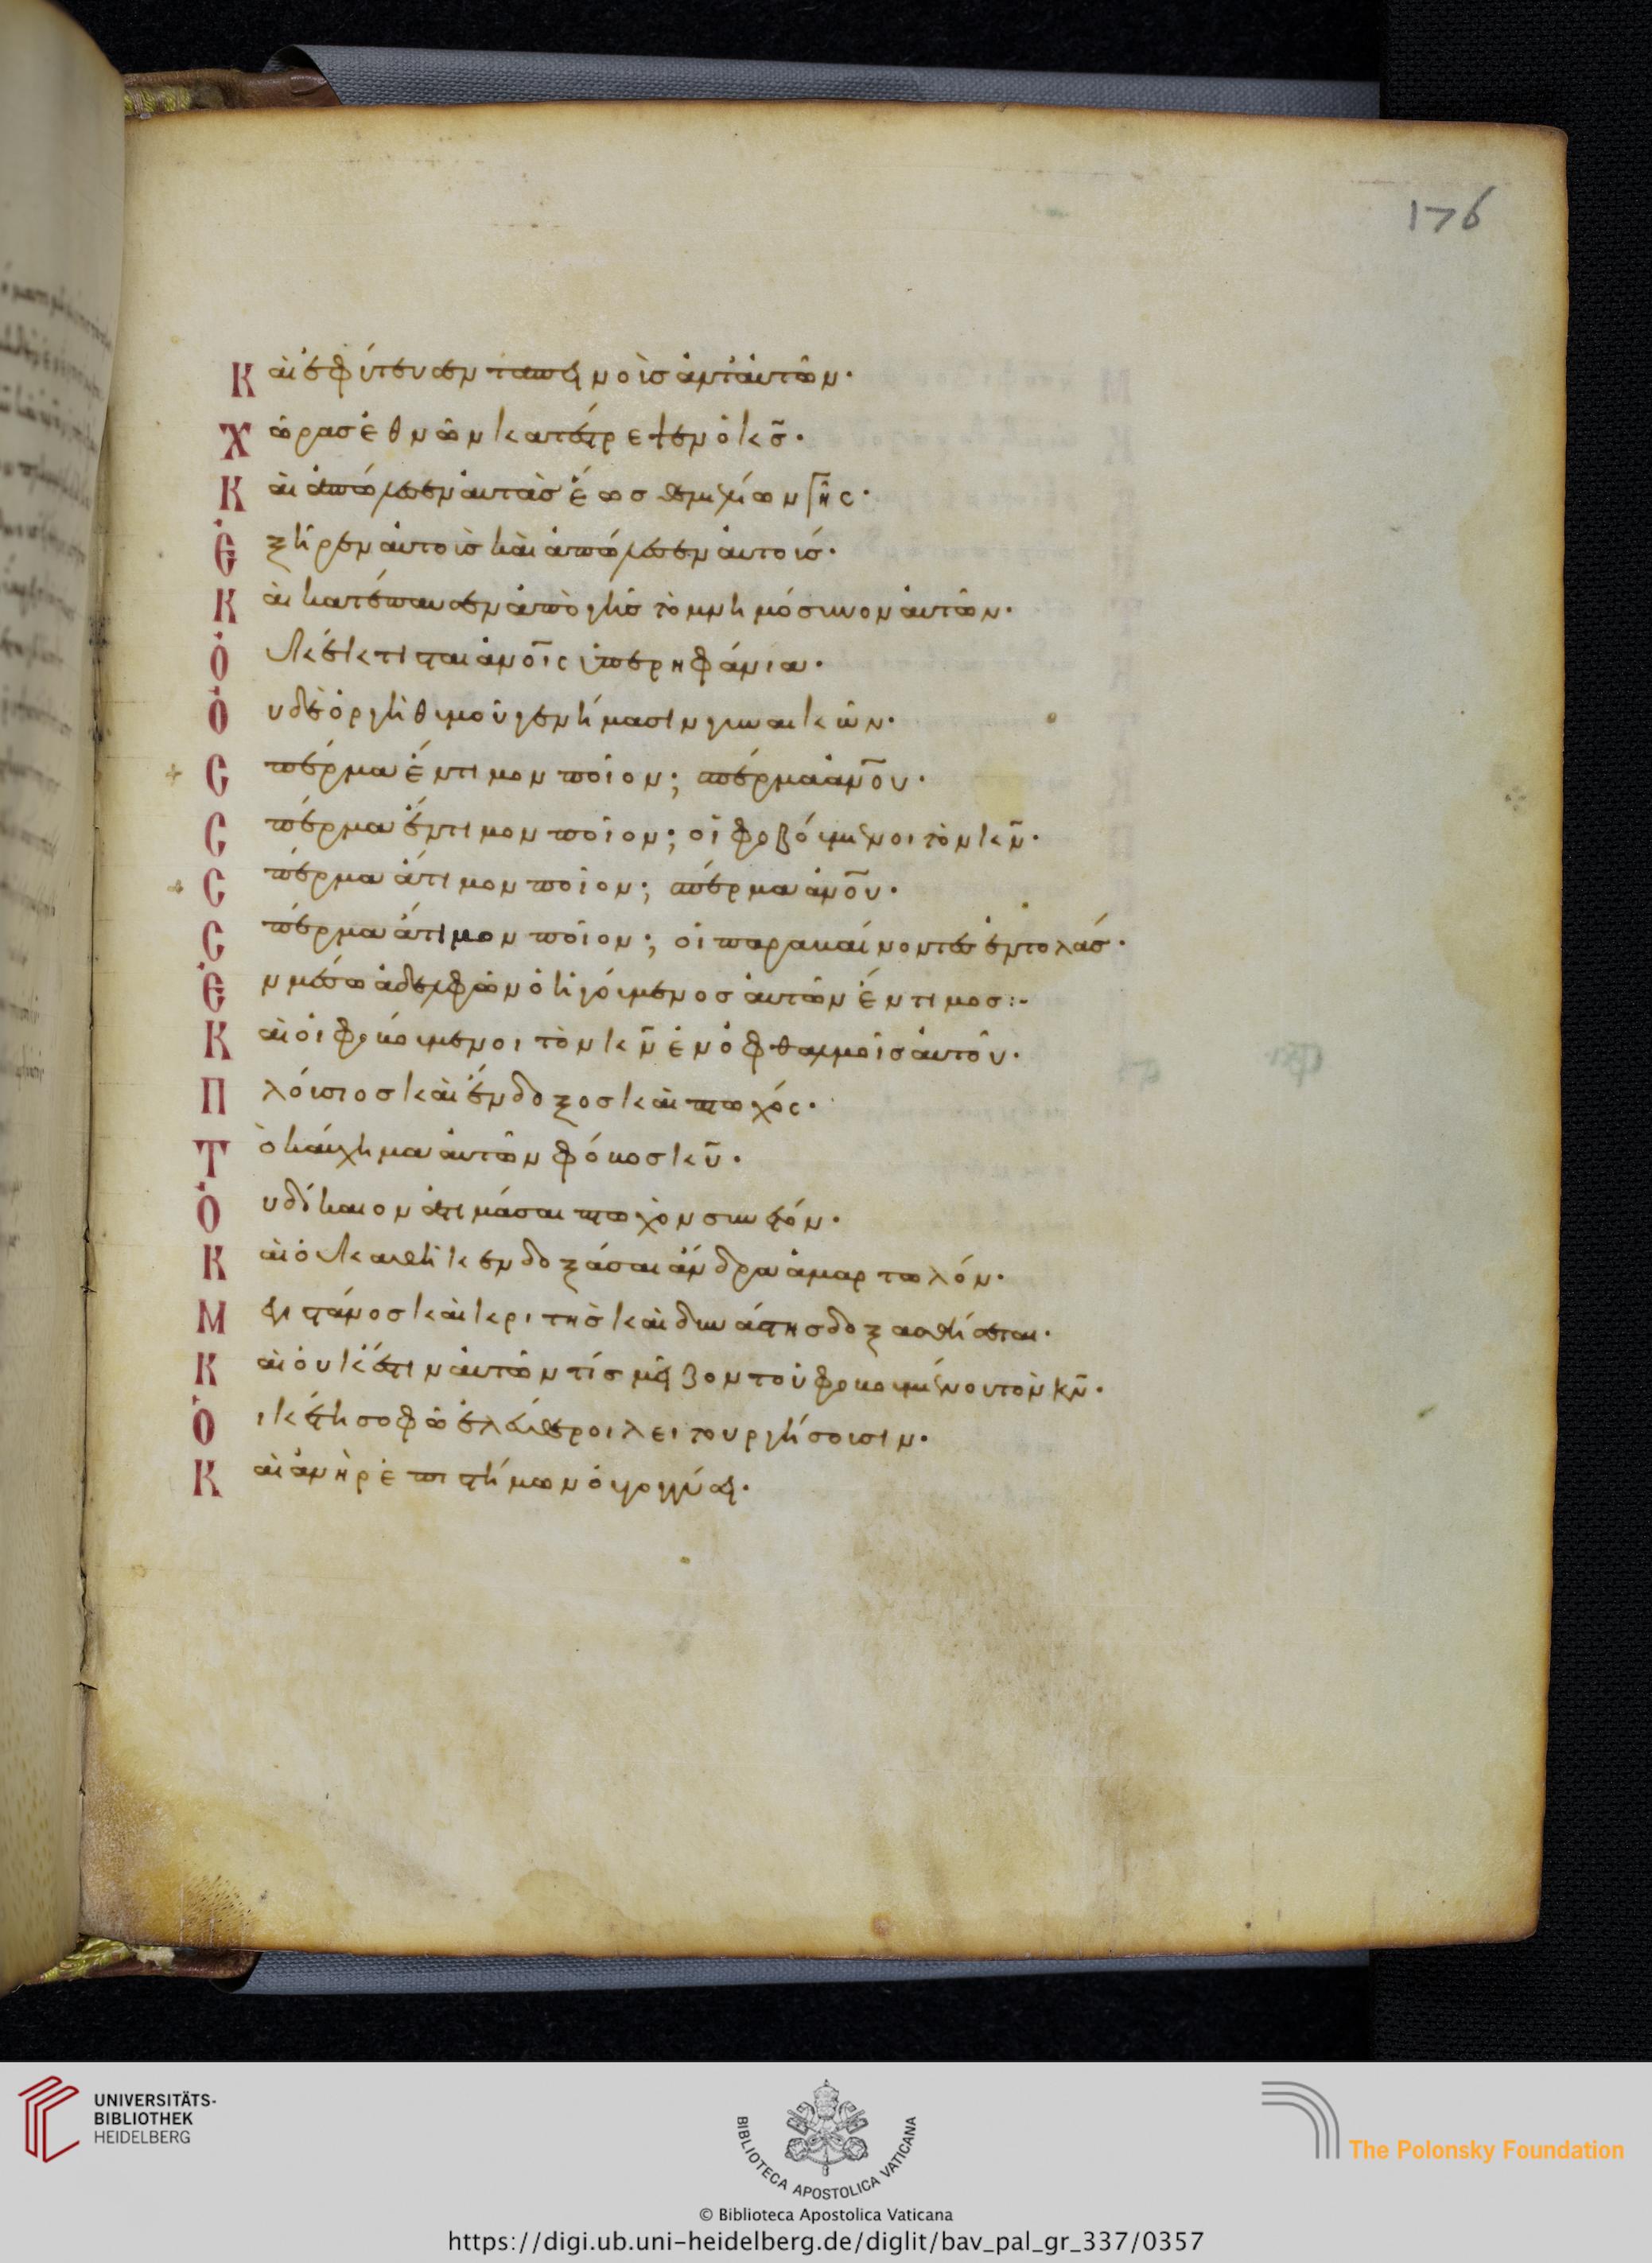 176
Καὶ ἐφύτευσεν ταπεινοὺς ἀντ' αὐτῶν·
Χώρας ἐθνῶν κατέστρεψεν ὁ κς̄·
Καὶ ἀπώλεσεν αὐτὰς ἕως θεμελίων γῆς·
Ἐξῆρεν αὐτοὺς καὶ ἀπώλεσεν αὐτούς·
Καὶ κατέπαυσεν ἀπὸ γῆς τὸ μνημόσυνον αὐτῶν·
Οὐκ ἔκτισται ἀνοῖς ὑπερηφάνια·
Οὐδὲ ὀργὴ θυμοῦ γενήμασιν γυναικῶν·
Σπέρμα ἔντιμον ποῖον; σπέρμα ἀνου·
Σπέρμα ἔντιμον ποῖον; οἱ φοβούμενοι τὸν κν̄·
Σπέρμα ἄτιμον ποῖον; σπέρμα ἀνου·
Σπέρμα ἄτιμον ποῖον; οἱ παραβαίνοντες ἐντολάς·
Ἐν μέσω ἀδελφῶν ὁ ἡγούμενος αὐτῶν ἔντιμος:-
Καὶ οἱ φοβούμενοι τὸν κν̄ ἐν ὀφθαλμοῖς αὐτοῦ·
Πλούσιος καὶ ἔνδοξος καὶ πτωχός·
Τὸ καύχημα αὐτῶν φόβος κῡ·
Οὐ δίκαιον ἀτιμάσαι πτωχὸν συνετόν·
Καὶ οὐ καθῆκεν δοξάσαι ἄνδρα ἁμαρτωλόν·
Μεγιστάνος καὶ κριτὴς καὶ δυνάστης δοξασθήσεται·
Καὶ οὐκ ἔστιν αὐτῶν τίς μεῖζον τοῦ φοβουμένου τὸν κν̄·
Οἰκέτη σοφῶ ἐλεύθεροι λειτουργήσουσιν·
Καὶ ἀνὴρ ἐπιστήμων οὐ γογγύσει·
UNIVERSITÄTS-
BIBLIOTHEK
HEIDELBERG
BIBLIOTECA APOSTOLICA VATICANA
The Polonsky Foundation
© Biblioteca Apostolica Vaticana
https://digi.ub.uni-heidelberg.de/diglit/bav_pal_gr_337/0357